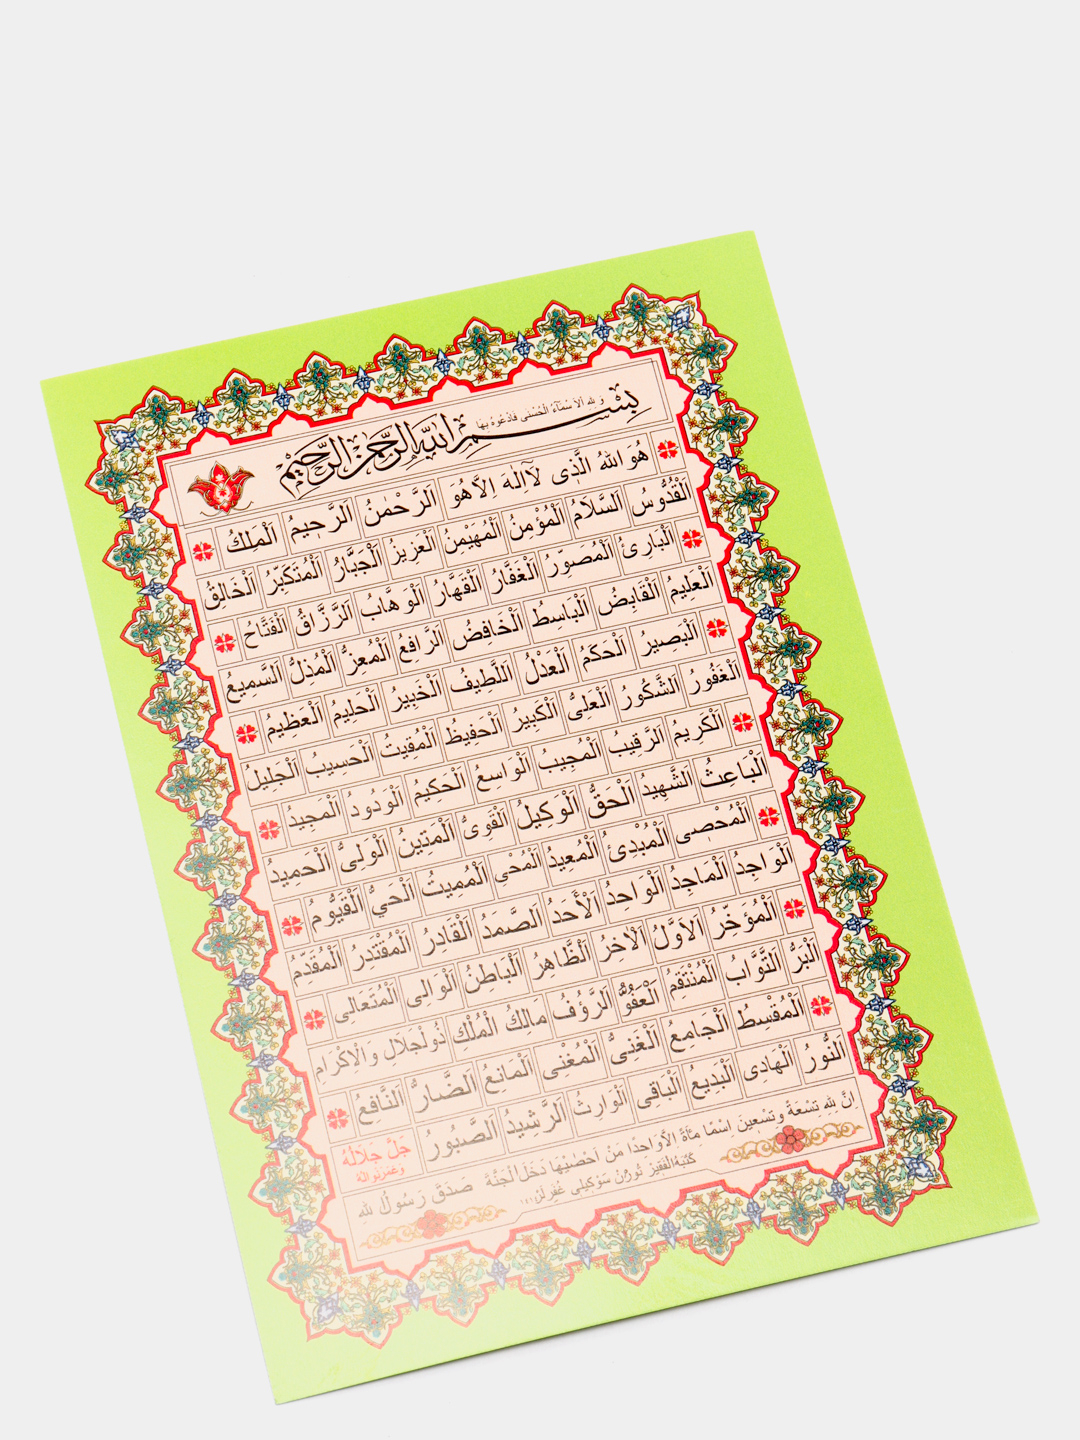 وَلِلّٰهِ الْاَسْمَآءُ الْحُسْنٰى فَادْعُوهُ بِهَا
بِسْمِ اللّٰهِ الرَّحْمٰنِ الرَّحِيْمِ
هُوَ اللّٰهُ الَّذِى لَآ اِلٰهَ اِلَّا هُوَ اَلرَّحْمٰنُ اَلرَّحِيمُ اَلْمَلِكُ
اَلْقُدُّوسُ اَلسَّلَامُ اَلْمُؤْمِنُ اَلْمُهَيْمِنُ اَلْعَزِيزُ اَلْجَبَّارُ اَلْمُتَكَبِّرُ اَلْخَالِقُ
اَلْبَارِئُ اَلْمُصَوِّرُ اَلْغَفَّارُ اَلْقَهَّارُ اَلْوَهَّابُ اَلرَّزَّاقُ اَلْفَتَّاحُ
اَلْعَلِيمُ اَلْقَابِضُ اَلْبَاسِطُ اَلْخَافِضُ اَلرَّافِعُ اَلْمُعِزُّ اَلْمُذِلُّ اَلسَّمِيعُ
اَلْبَصِيرُ اَلْحَكَمُ اَلْعَدْلُ اَللَّطِيفُ اَلْخَبِيرُ اَلْحَلِيمُ اَلْعَظِيمُ
اَلْغَفُورُ اَلشَّكُورُ اَلْعَلِىُّ اَلْكَبِيرُ اَلْحَفِيظُ اَلْمُقِيتُ اَلْحَسِيبُ اَلْجَلِيلُ
اَلْكَرِيمُ اَلرَّقِيبُ اَلْمُجِيبُ اَلْوَاسِعُ اَلْحَكِيمُ اَلْوَدُودُ اَلْمَجِيدُ
اَلْبَاعِثُ اَلشَّهِيدُ اَلْحَقُّ اَلْوَكِيلُ اَلْقَوِىُّ اَلْمَتِينُ اَلْوَلِىُّ اَلْحَمِيدُ
اَلْمُحْصِى اَلْمُبْدِئُ اَلْمُعِيدُ اَلْمُحْيِ اَلْمُمِيتُ اَلْحَيُّ اَلْقَيُّومُ
اَلْوَاجِدُ اَلْمَاجِدُ اَلْوَاحِدُ اَلْأَحَدُ اَلصَّمَدُ اَلْقَادِرُ اَلْمُقْتَدِرُ اَلْمُقَدِّمُ
اَلْمُؤَخِّرُ اَلْاَوَّلُ اَلْآخِرُ اَلظَّاهِرُ اَلْبَاطِنُ اَلْوَالِى اَلْمُتَعَالِى
اَلْبَرُّ اَلتَّوَّابُ اَلْمُنْتَقِمُ اَلْعَفُوُّ اَلرَّؤُفُ مَالِكُ الْمُلْكِ ذُولْجَلَالِ وَالْاِكْرَامِ
اَلْمُقْسِطُ اَلْجَامِعُ اَلْغَنِىُّ اَلْمُغْنِى اَلْمَانِعُ اَلضَّارُّ اَلنَّافِعُ
اَلنُّورُ اَلْهَادِى اَلْبَدِيعُ اَلْبَاقِى اَلْوَارِثُ اَلرَّشِيدُ اَلصَّبُورُ جَلَّ جَلَالُهُ
اِنَّ لِلّٰهِ تِسْعَةً وَتِسْعِينَ اِسْمًا مِأَةً اِلَّا وَاحِدًا مَنْ اَحْصٰيهَا دَخَلَ الْجَنَّةَ صَدَقَ رَسُولُ اللّٰهِ
كَتَبَهُ الْفَقِيرُ